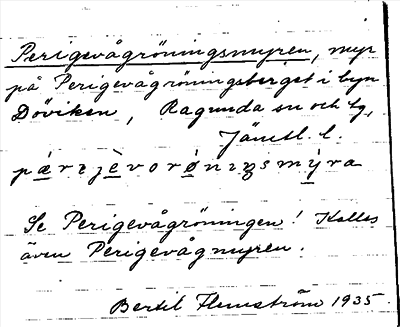 Perigevågröningsmyren, myr
på Perigevågröningsberget i byn
Döviken, Ragunda sn och tg,
Jämtl. l.
pærɪjèvorǿnɪŋsmýra
Se Perigevågröningen! Kallas
även Perigevågmyren.
Bertil Flemström 1935